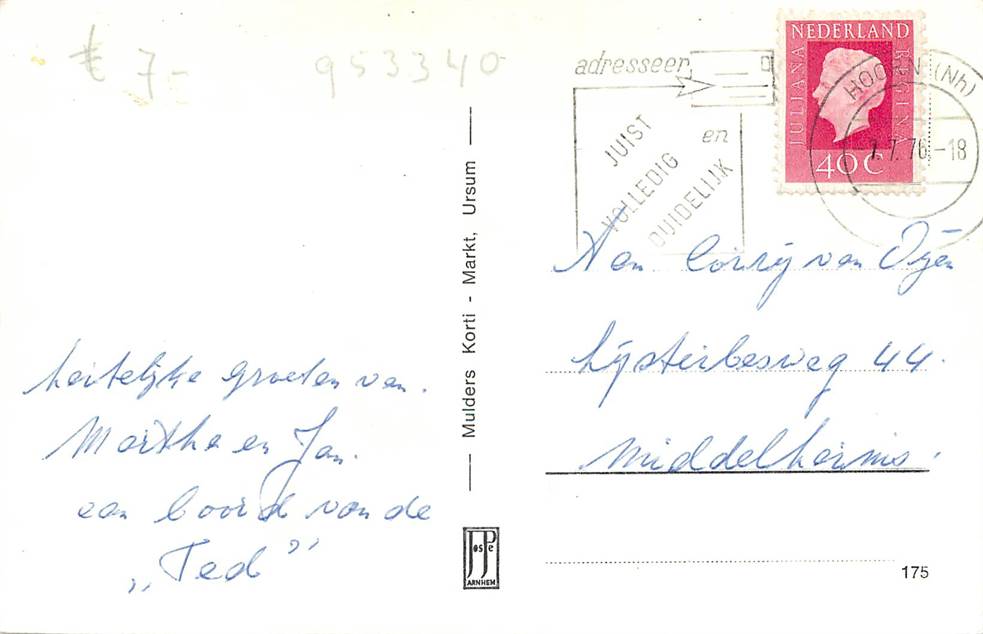 € 7,-
953340
adresseer
JUIST
en
VOLLEDIG
DUIDELIJK
NEDERLAND
JULIANA
REGINA
40 C
HOORN (Nh)
-7.7.76-18
Aan Corry van Oijen
Lijsterbesweg 44.
Middelharnis.
hartelijke groeten van.
Martha en Jan.
aan boord van de
„Ted”
Mulders Korti - Markt, Ursum
JosPe
ARNHEM
175